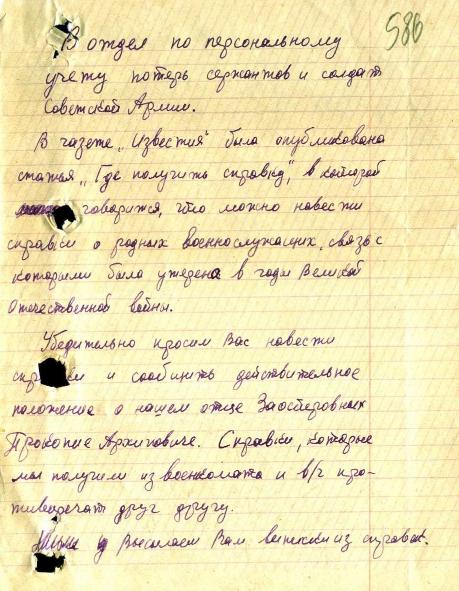 586
В отдел по персональному
учету потерь сержантов и солдат
Советской Армии.
В газете „Известия" была опубликована
статья „Где получить справку", в которой
говорится, что можно навести
справки о родных военнослужащих, связь с
которыми была утеряна в годы Великой
Отечественной войны.
Убедительно просим Вас навести
справки и сообщить действительное
положение о нашем отце Заостровных
Прокопие Архиповиче. Справки, которые
мы получили из военкомата и в/ч про-
тиворечат друг другу.
Высылаем Вам выписки из справок.